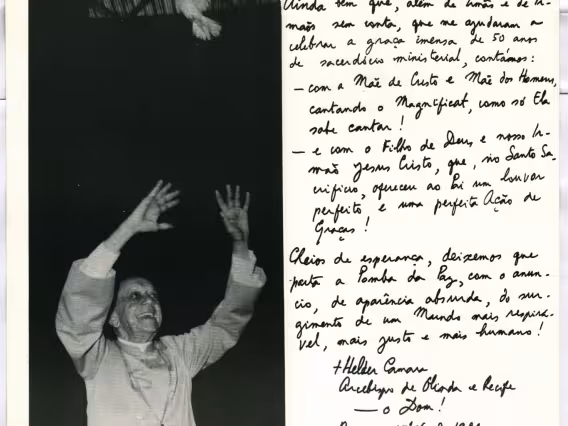 Ainda bem que, além de irmãs e de ir-
mãos sem conta, que me ajudaram a
celebrar a graça imensa de 50 anos
de sacerdócio ministerial, contámos:
— com a Mãe de Cristo e Mãe dos Homens,
cantando o Magnificat, como só Ela
sabe cantar!
— e com o Filho de Deus e nosso Ir-
mão Jesus Cristo, que, no Santo Sa-
crifício, ofereceu ao Pai um louvor
perfeito e uma perfeita Ação de
Graças!
Cheios de esperança, deixemos que
parta a Pomba da Paz, com o anún-
cio, de aparência absurda, do sur-
gimento de um Mundo mais respirá-
vel, mais justo e mais humano!
+ Helder Camara
Arcebispo de Olinda e Recife
— o Dom!